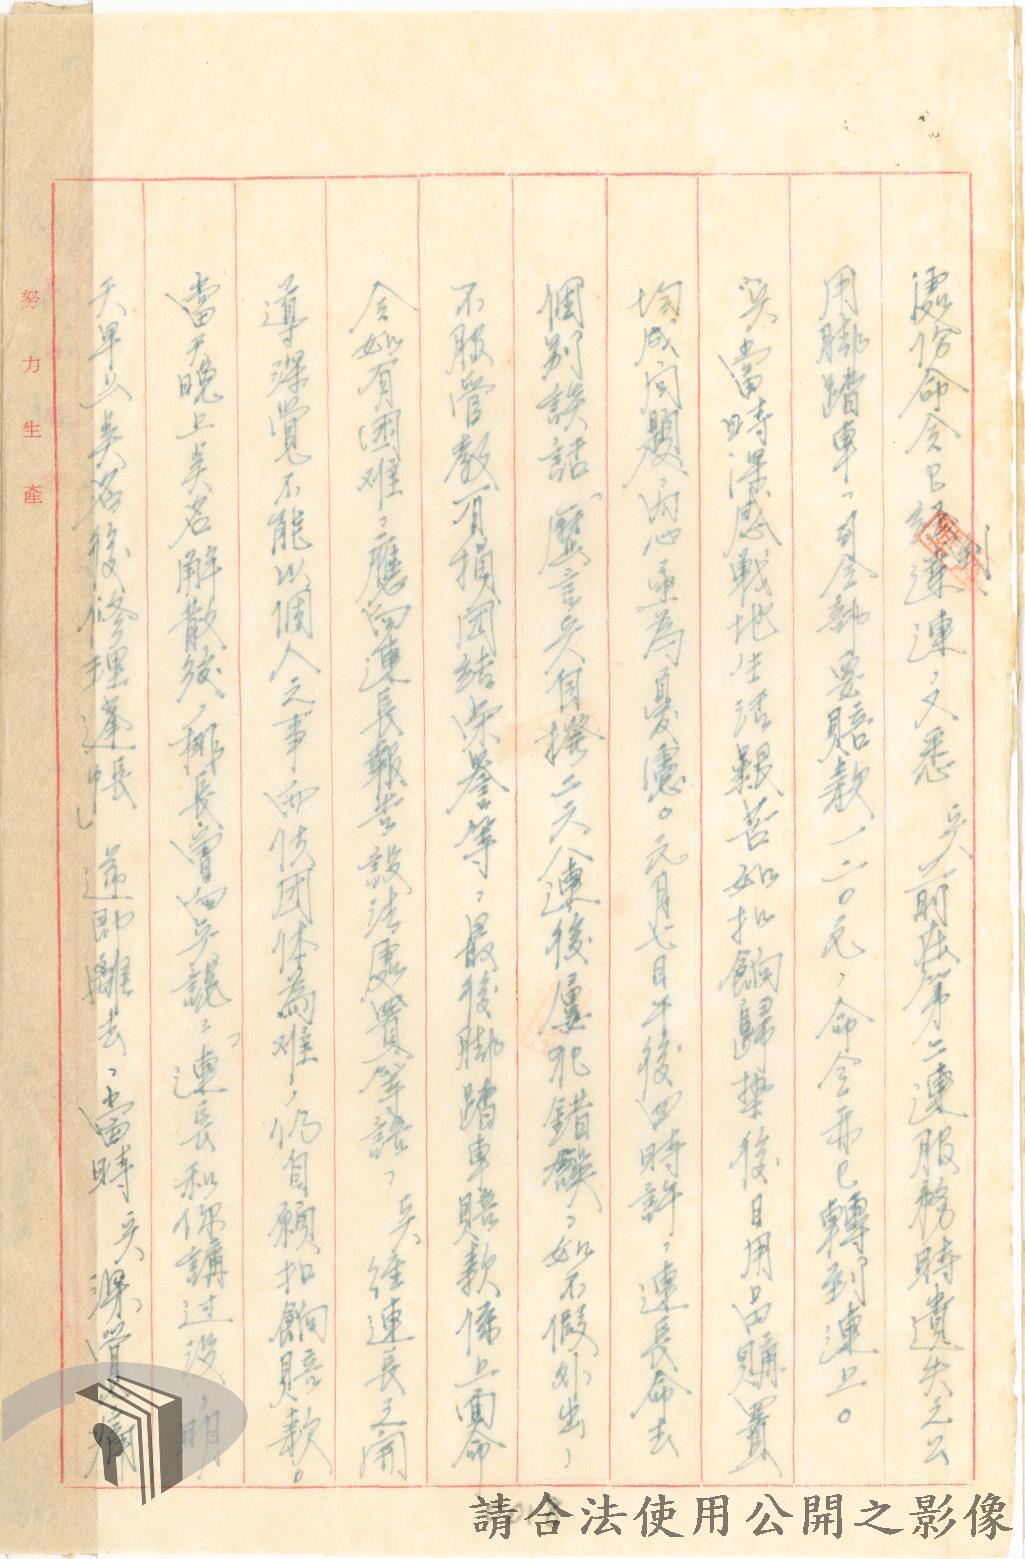 處份命令已到達連，又悉 吳前在第二連服務時遺失之公
用腳踏車，司令部要賠款一二０元，命令亦已轉到連上。
吳當時深感戰地生活艱苦如扣餉歸墊後日用品購置
均成問題，內心亟為憂慮。元月七日午後四時許，連長命去
個別談話，歷言吳自撥二天入連後屢犯錯誤，如不假外出，
不服管教有損團結榮譽等，最後腳踏車賠款係上面命
令如有困难，應向連長報告設法處置等語，吳經連長之開
導深覺不能以個人之事而使团体為难，仍自願扣餉賠款。
當天晚上吳名解散後，排長曾向吳說：連長和你講过沒，明
天早上吳名後修理蓬帳」並即離去，當時 吳深覺
努力生產
請合法使用公開之影像